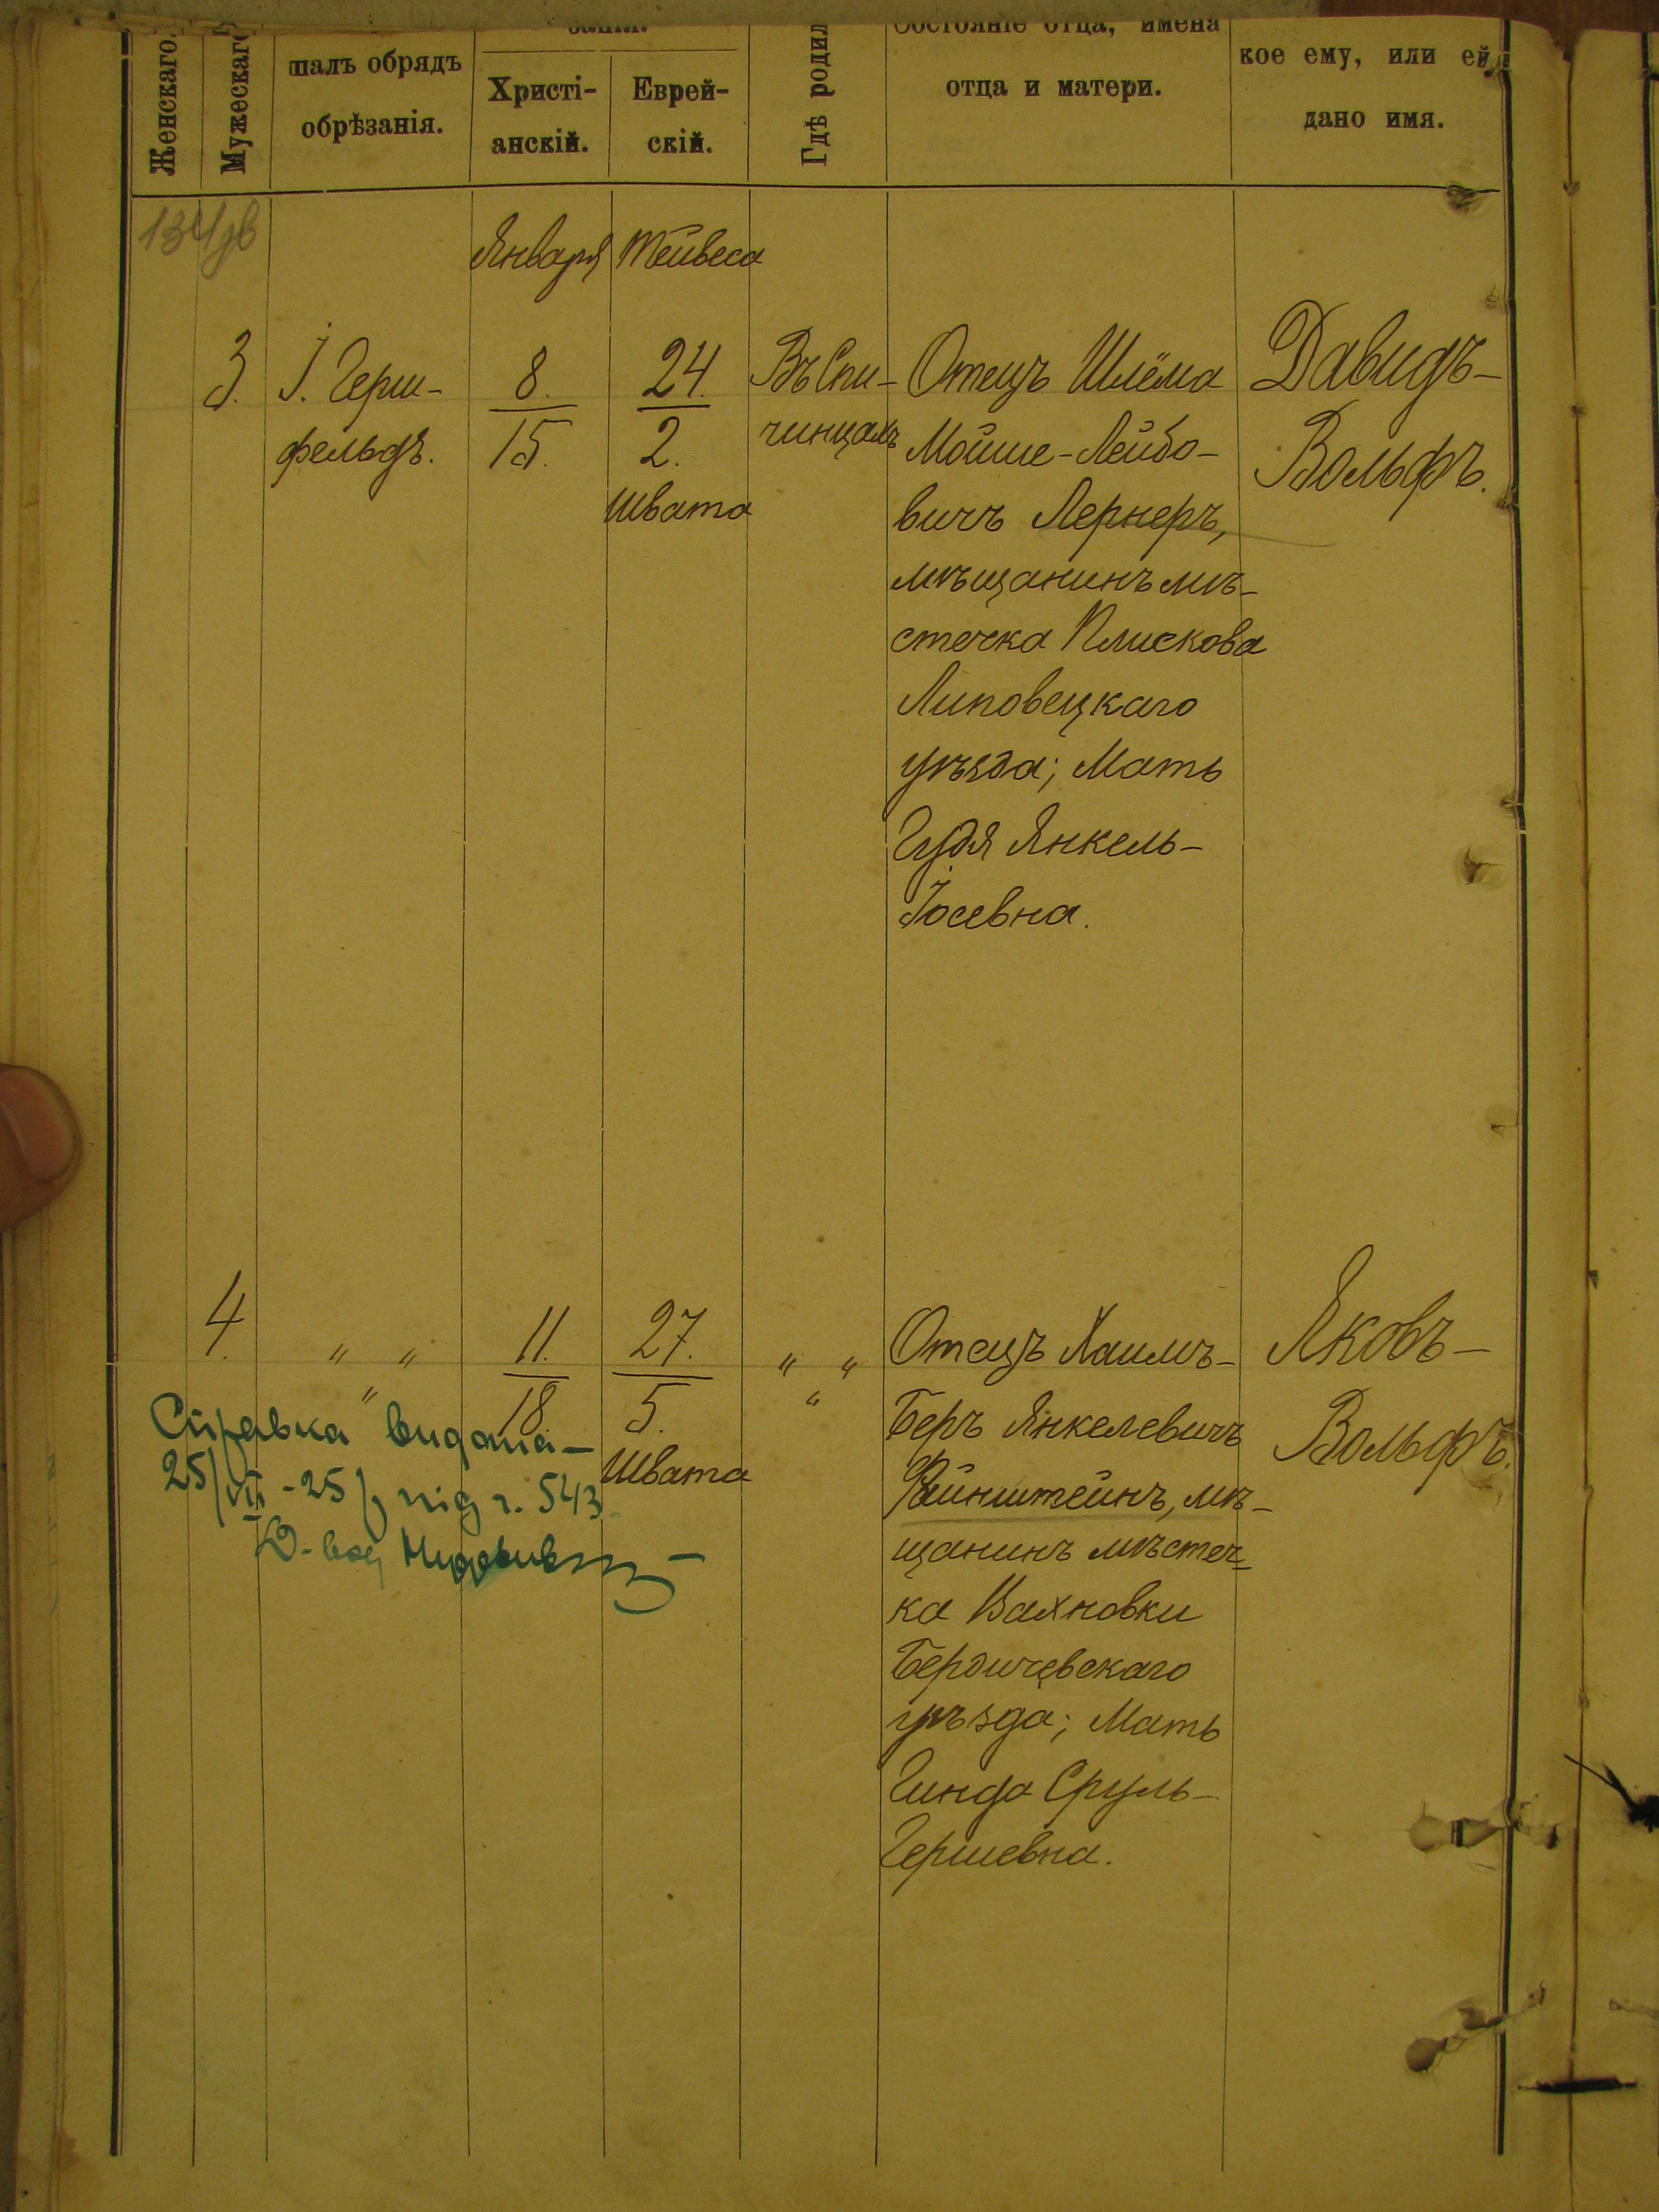 Женскаго.
Мужескаго
шалъ обрядъ
обрѣзанія.
Христі-
анскій.
Еврей-
скій.
Гдѣ родил
Состояніе отца, имена
отца и матери.
кое ему, или ей
дано имя.
Января Тейвеса
3. І. Герш-
фельдъ.
8.
15.
24.
2.
Швата
Въ Спи-
чинцахъ
Отецъ Шлёма
Мойше-Лейбо-
вичъ Лернеръ,
мѣщанинъ мѣ-
стечка Плискова
Липовецкаго
уѣзда; Мать
Гудя Янкель-
Іосевна.
Давидъ-
Вольфъ.
4. " " "
11.
18.
27.
5.
Швата
" " "
Отецъ Хаимъ-
Беръ Янкелевичъ
Файнштейнъ, мѣ-
щанинъ мѣстеч-
ка Вахновки
Бердичевскаго
уѣзда; Мать
Гинда Сруль-
Гершевна.
Яковъ-
Вольфъ.
Справка видана-
25/VII-25 р під ч. 543